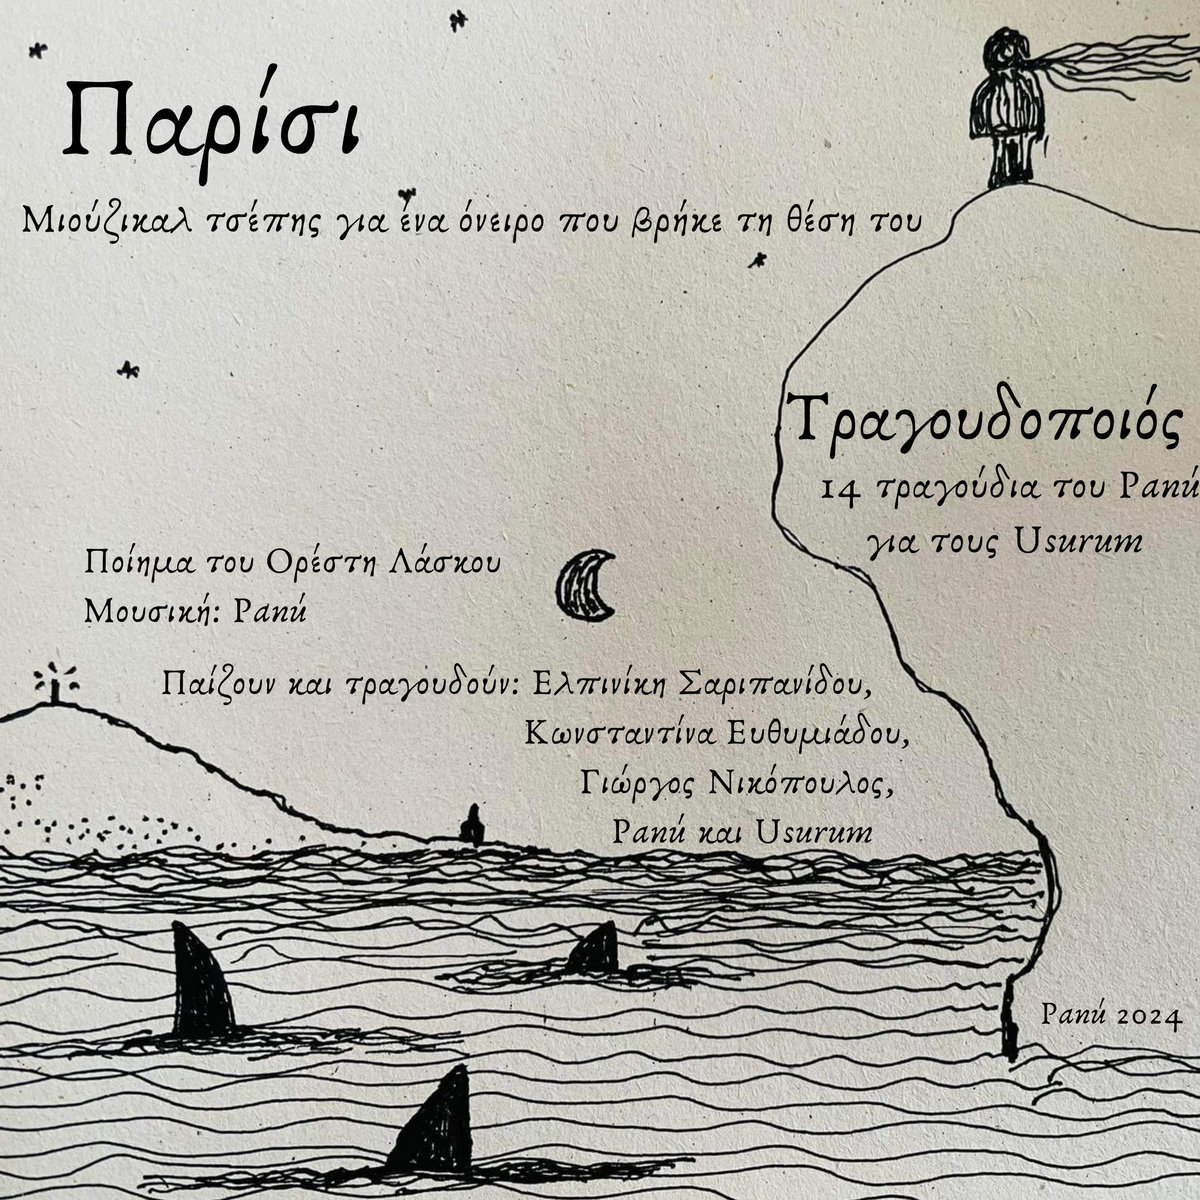 Παρίσι
Μιούζικαλ τσέπης για ένα όνειρο που βρήκε τη θέση του
Τραγουδοποιός
14 τραγούδια του Panú
για τους Usurum
Ποίημα του Ορέστη Λάσκου
Μουσική: Panú
Παίζουν και τραγουδούν: Ελπινίκη Σαριπανίδου,
Κωνσταντίνα Ευθυμιάδου,
Γιώργος Νικόπουλος,
Panú και Usurum
Panú 2024